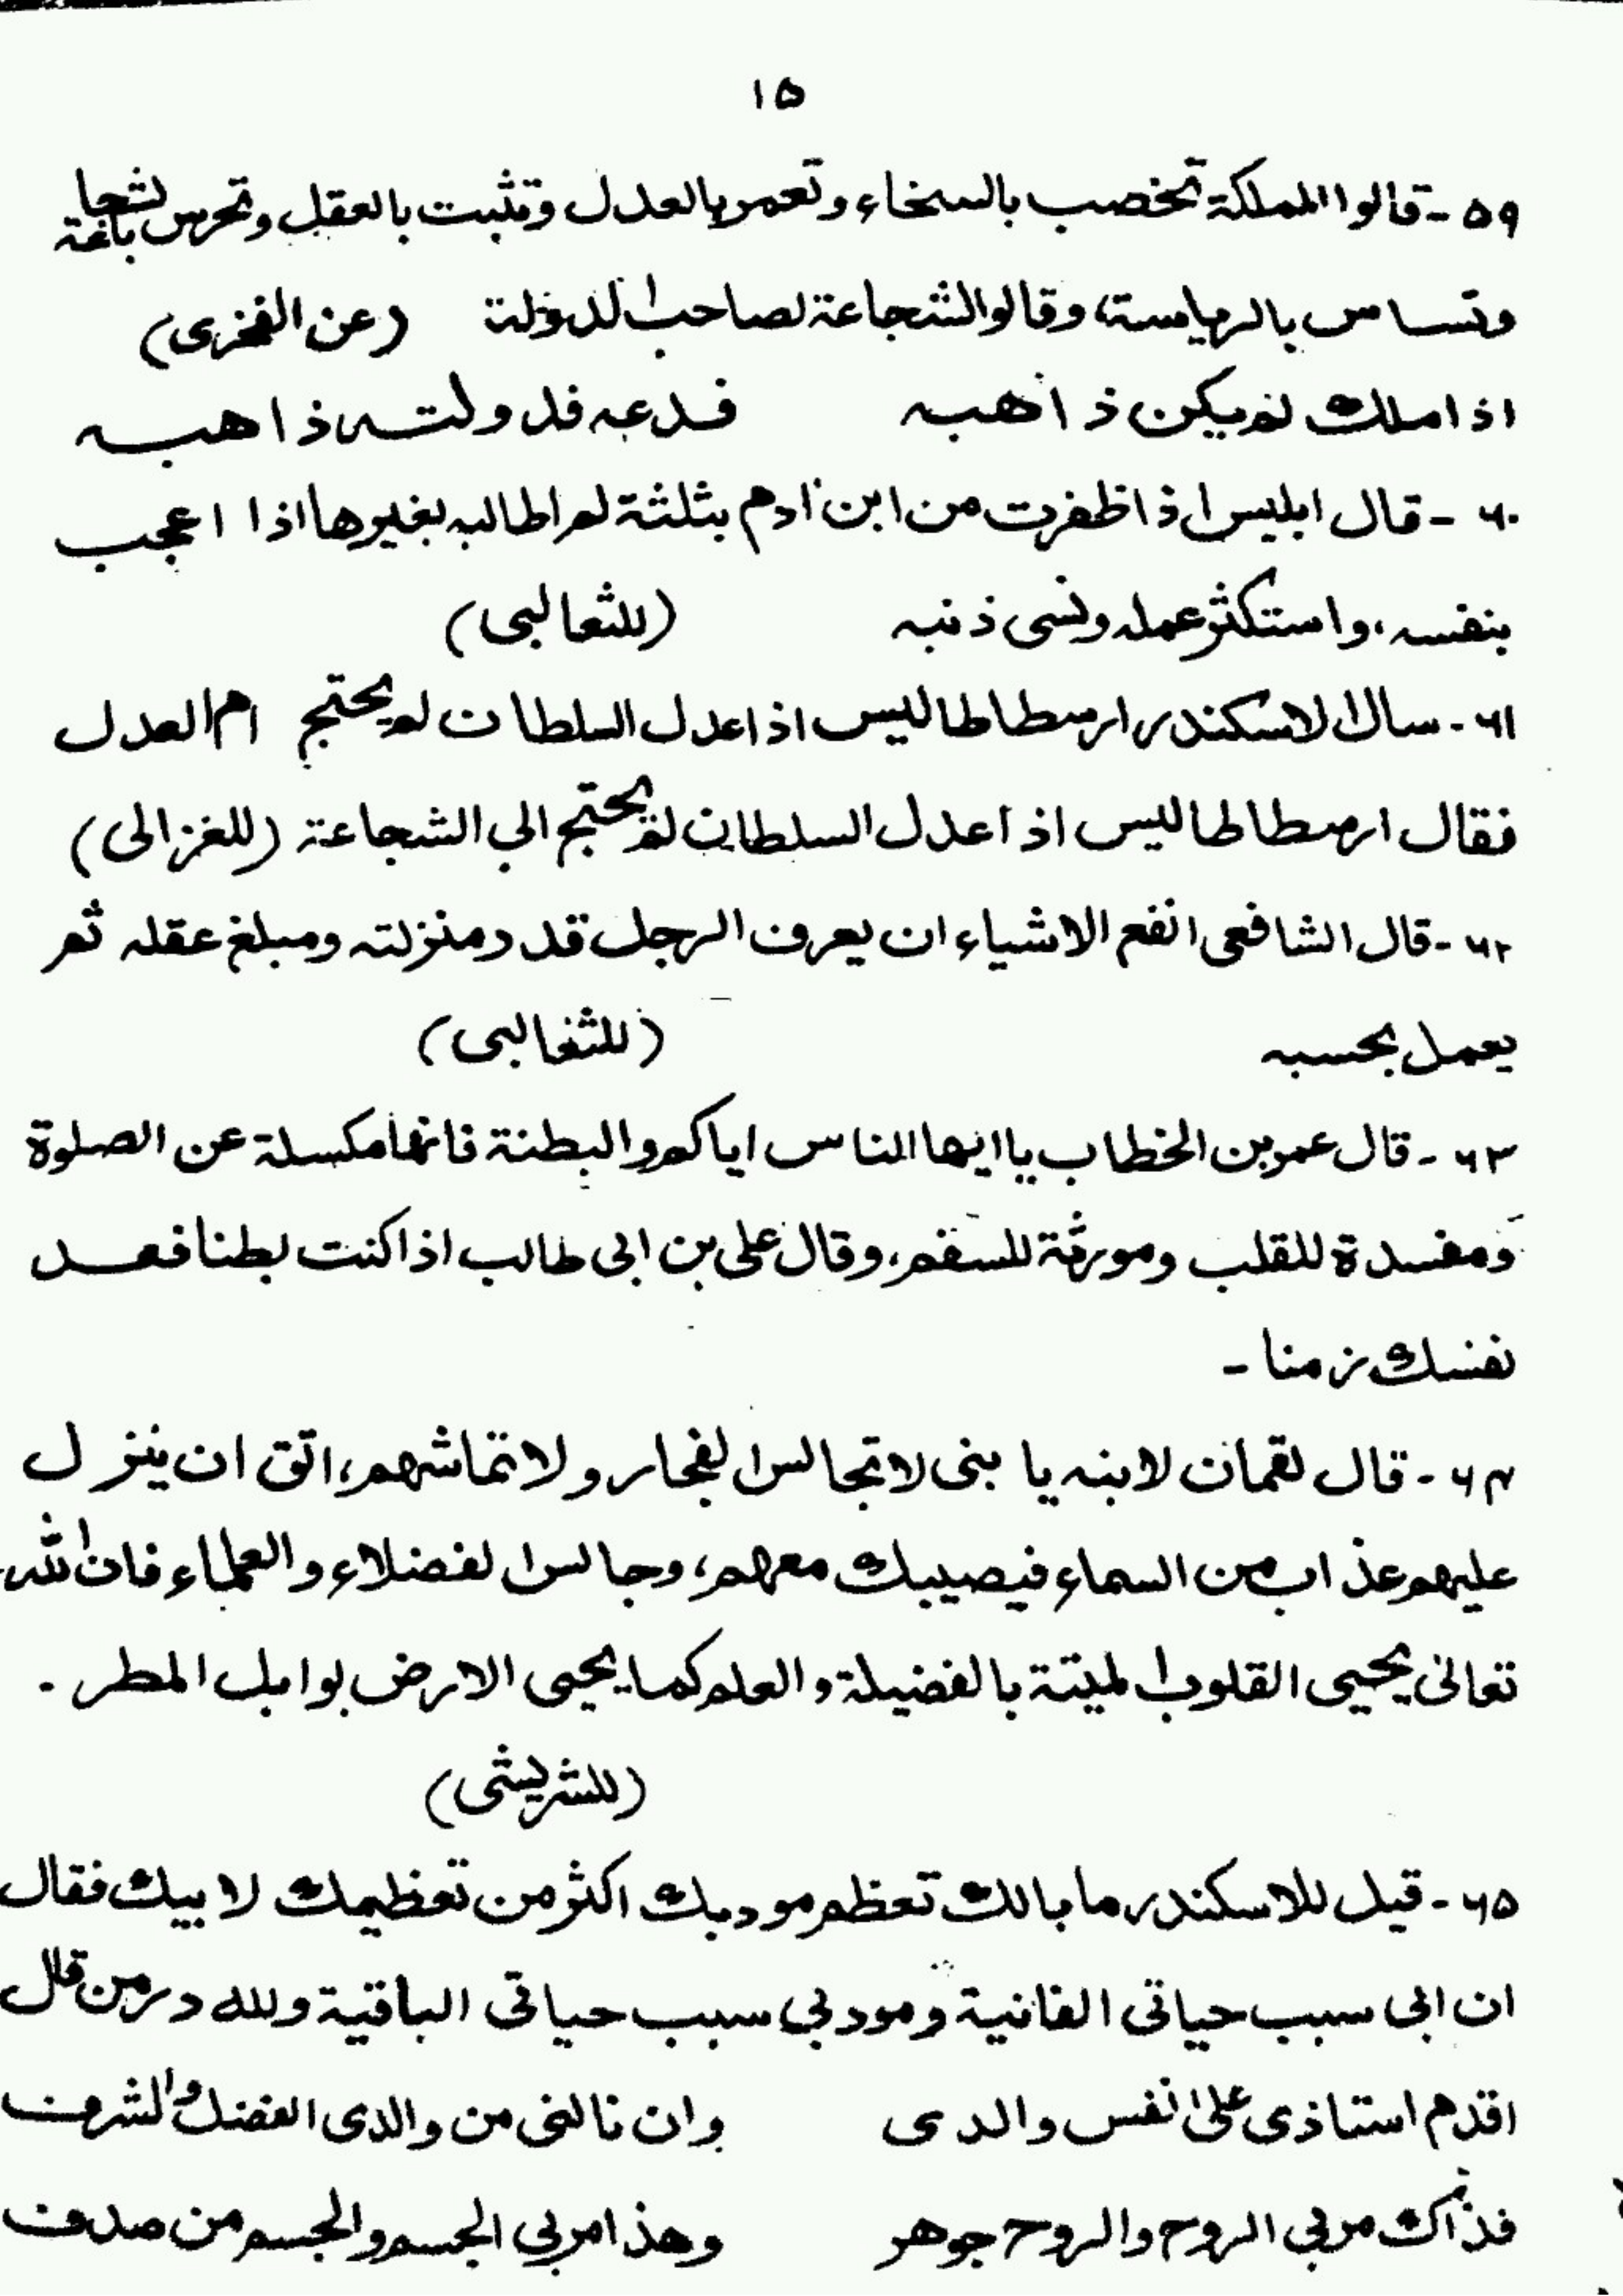 ۱۵
۵۹ - قالوا المملكة تخصب بالسخاء وتعمر بالعدل وتثبت بالعقل وتحرس بالشجاعة
وتساس بالرياسة، وقالوا الشجاعة لصاحب الدولة (عن الفخرى)
اذا ملك لم يكن ذا هبه فدعه فدولته ذاهبه
۶۰ - قال ابليس اذا ظفرت من ابن ادم بثلثة لم اطالبه بغيرها اذا اعجب
بنفسه، واستكثر عمله ونسى ذنبه (للثعالبى)
۶۱ - سال الاسكندر ارسطاطاليس اذا عدل السلطان لم يحتج ام العدل
فقال ارسطاطاليس اذا عدل السلطان لم يحتج الي الشجاعة (للغزالى)
۶۲ - قال الشافعى انفع الاشياء ان يعرف الرجل قدر منزلته ومبلغ عقله ثم
يعمل بحسبه (للثغالبى)
۶۳ - قال عمر بن الخطاب يا ايها الناس اياكم والبطنة فانها مكسلة عن الصلوة
ومفسدة للقلب ومورثة للسقم، وقال على بن ابى طالب اذا كنت بطنا فعد
نفسك زمنا -
۶۴ - قال لقمان لابنه يا بنى لا تجالس الفجار ولا تماشهم، اتق ان ينزل
عليهم عذاب من السماء فيصيبك معهم، وجالس الفضلاء والعلماء فان الله
تعالىٰ يحيى القلوب الميتة بالفضيلة والعلم كما يحيى الارض بوابل المطر .
(للشريشى)
۶۵ - قيل للاسكندر ما بالك تعظم مودبك اكثر من تعظيمك لابيك فقال
ان ابى سبب حياتى الفانية ومودبي سبب حياتى الباقية ولله در من قال
اقدم استاذى علىٰ نفس والدى وان نالنى من والدى الفضل والشرف
فذاك مربي الروح والروح جوهر وهذا مربي الجسم والجسم من صدف